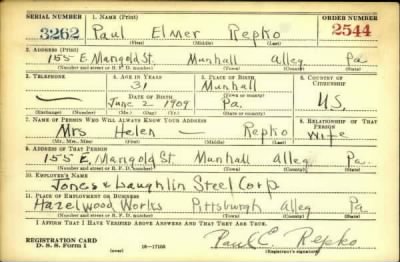 SERIAL NUMBER 1. NAME (Print) ORDER NUMBER
3262 Paul Elmer Repko 2544
(First) (Middle) (Last)
2. ADDRESS (Print)
155 E. Marigold St. Munhall Alleg Pa.
(Number and street or R. F. D. number) (Town) (County) (State)
3. TELEPHONE 4. AGE IN YEARS 5. PLACE OF BIRTH 6. COUNTRY OF CITIZENSHIP
— 31 Munhall
DATE OF BIRTH (Town or county)
June 2 1909 Pa. U.S.
(Exchange) (Number) (Mo.) (Day) (Yr.) (State or country)
7. NAME OF PERSON WHO WILL ALWAYS KNOW YOUR ADDRESS 8. RELATIONSHIP OF THAT PERSON
Mrs Helen — Repko Wife
(Mr., Mrs., Miss) (First) (Middle) (Last)
9. ADDRESS OF THAT PERSON
155 E. Marigold St. Munhall Alleg Pa.
(Number and street or R. F. D. number) (Town) (County) (State)
10. EMPLOYER'S NAME
Jones & Laughlin Steel Corp
11. PLACE OF EMPLOYMENT OR BUSINESS
Hazelwood Works Pittsburgh Alleg Pa.
(Number and street or R. F. D. number) (Town) (County) (State)
I AFFIRM THAT I HAVE VERIFIED ABOVE ANSWERS AND THAT THEY ARE TRUE.
Paul E. Repko
REGISTRATION CARD
D. S. S. Form 1 (over) 16—17105 (Registrant's signature)